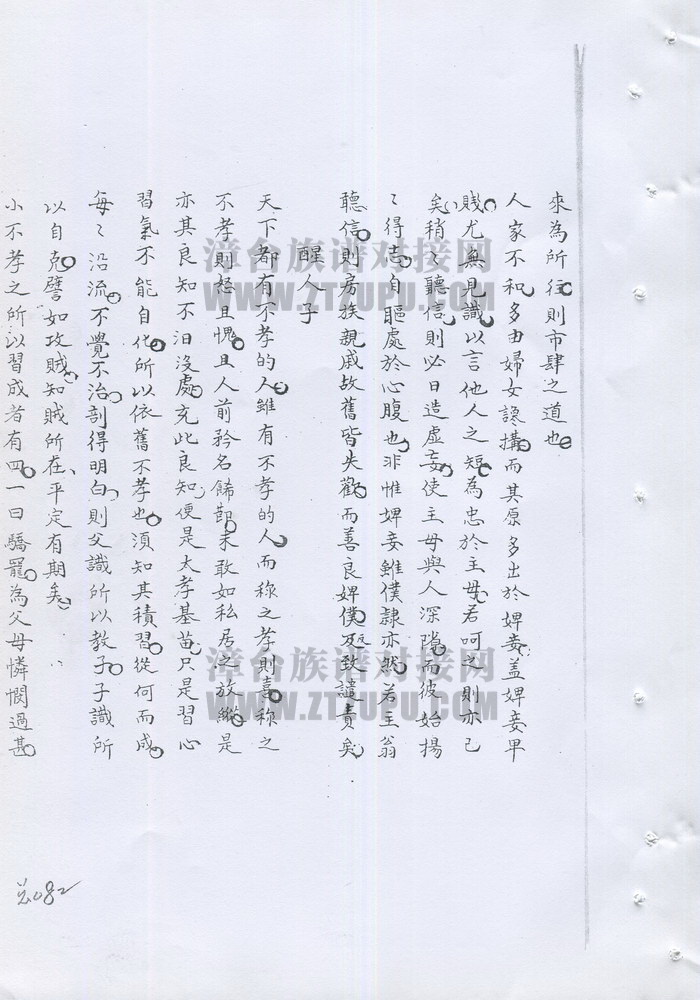 來為所往則市肆之道也
人家不和多由婦女讒搆而其原多出於婢妾盖婢妾早
賎尤無見識以言他人之短為忠於主母若呵之則亦已
矣稍之聽信則必日造虛妄使主母與人深隙而彼始揚
〻得志自軀處於心腹也非惟婢妾雖僕隸亦然若主翁
聽信則房族親戚故舊皆失歡而善良婢僕反致譴責矣
醒人子
天下都有不孝的人雖有不孝的人而稱之孝則喜稱之
不孝則怒且愧且人前矜名餙節未敢如私居之放縱是
亦其良知不汨沒處充此良知便是太孝基苗只是習心
習氣不能自化所以依舊不孝也須知其積習從何而成
每〻沿流不覺不治剖得明白則父識所以教子子識所
以自克譬如攻賊知賊所在平定有期矣
小不孝之所以習成者有四一曰驕罷為父母憐憫過甚
总082
漳台族谱对接网
WWW.ZTZUPU.COM
漳台族谱对接网
WWW.ZTZUPU.COM